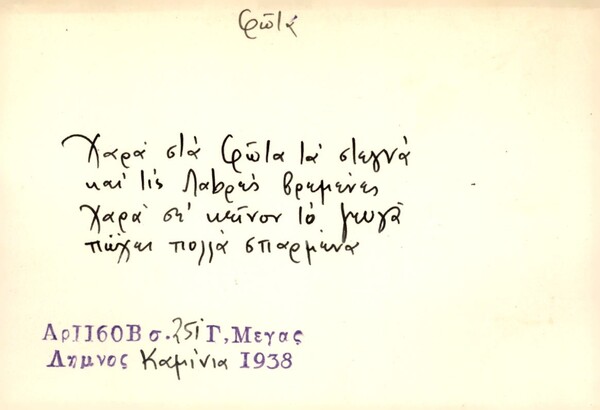 Φῶτα
Χαρά στά Φῶτα τά στεγνά
καί τίς Λαβρές βρεμένες
Χαρά σέ κεῖνον τό ζευγᾶ
πὤχει πολλά σπαρμένα
ΑρΙΙ60Β σ. 251 Γ, Μεγας
Λημνος Καμίνια 1938